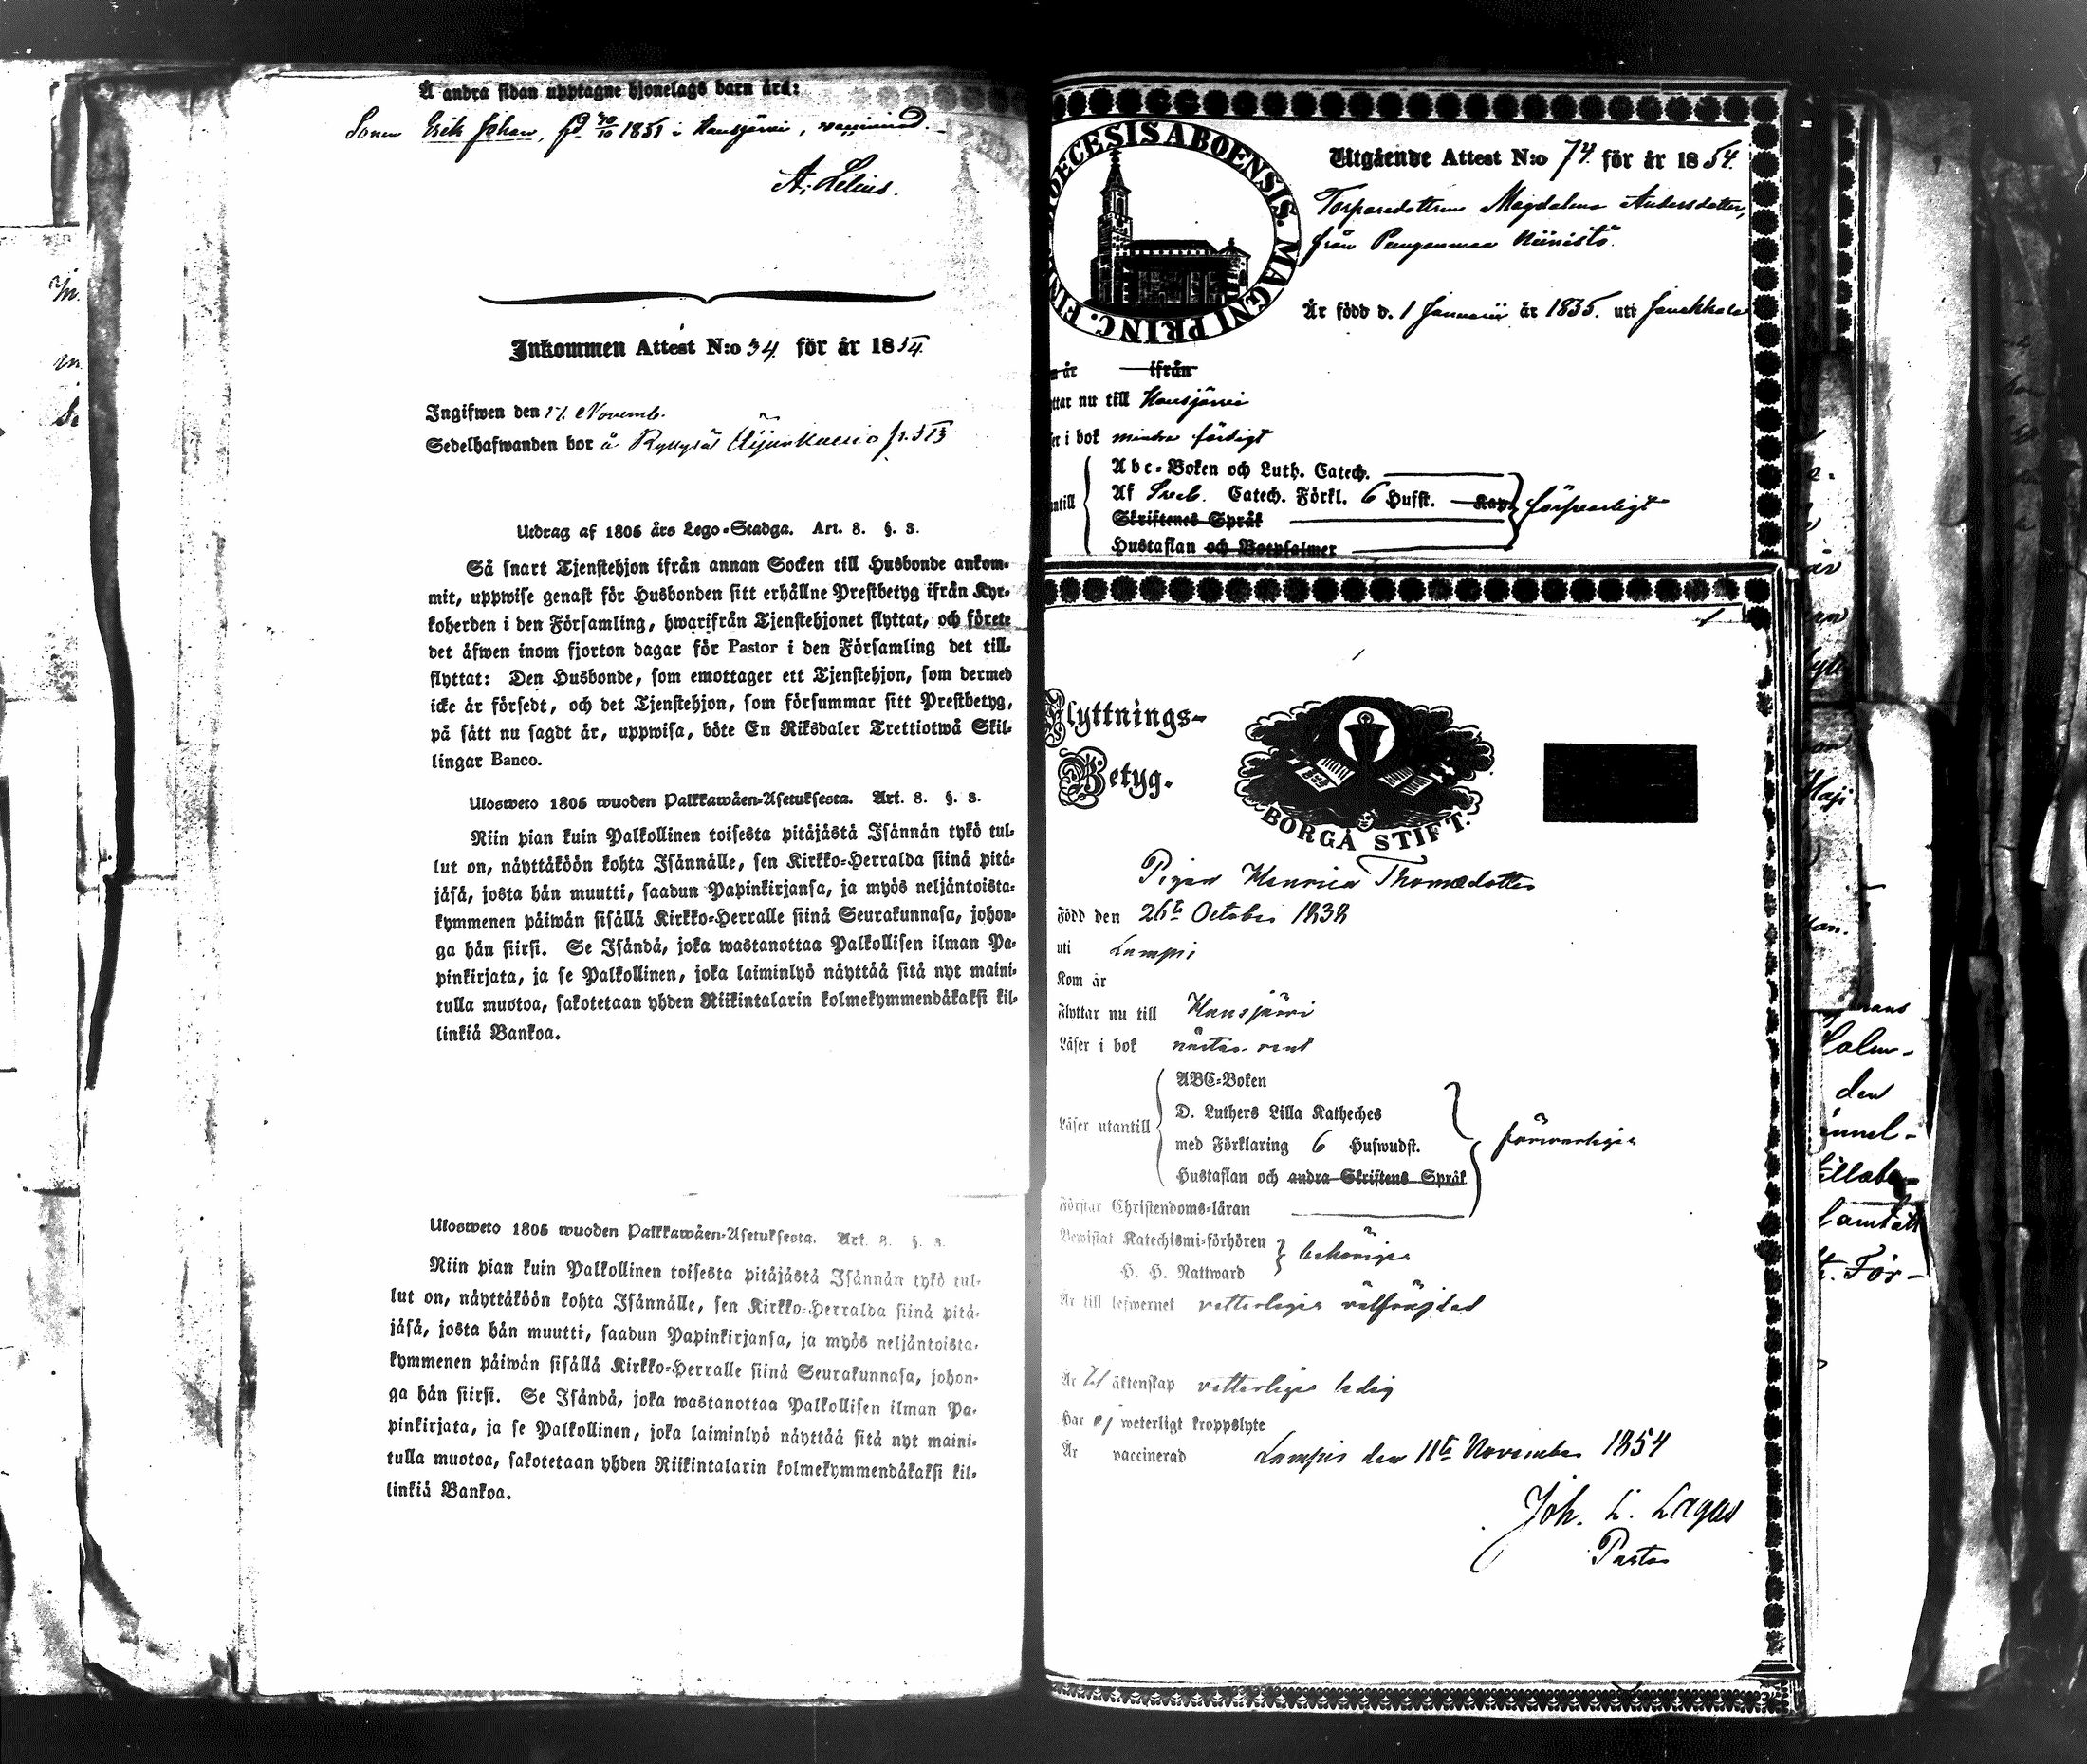 Å andra sidan upptagne hjonelags barn ärd:
Sonen Erik Johan, fd 30/10 1851 i Hausjärvi, vaccinerad.
A. Lilius.
Inkommen Attest N:o 34. för år 1854.
Ingifwen den 17. Novemb.
Sedelhafwanden bor å Ryttylä
Utdrag af 1805 års Lego-Stadga. Art. 8. §. 3.
Så snart Tjenstehjon ifrån annan Socken till Husbonde ankom-
mit, uppwise genast för Husbonden sitt erhållne Prestbetyg ifrån Kyr-
koherden i den Församling, hwarifrån Tjenstehjonet flyttat, och förete
det äfwen inom fjorton dagar för Pastor i den Församling det till-
flyttat: Den Husbonde, som emottager ett Tjenstehjon, som dermed
icke är försedt, och det Tjenstehjon, som försummar sitt Prestbetyg,
på sätt nu sagdt är, uppwisa, böte En Riksdaler Trettiotwå Skil-
lingar Banco.
Ulosweto 1805 wuoden Palkkawäen-Asetuksesta. Art. 8. §. 3.
Niin pian kuin Palkollinen toisesta pitäjästä Isännän tykö tul-
lut on, näyttäköön kohta Isännälle, sen Kirkko-Herralda siinä pitä-
jäsä, josta hän muutti, saadun Papinkirjansa, ja myös neljäntoista-
kymmenen päiwän sisällä Kirkko-Herralle siinä Seurakunnasa, johon-
ga hän siirsi. Se Isändä, joka wastanottaa Palkollisen ilman Pa-
pinkirjata, ja se Palkollinen, joka laiminlyö näyttää sitä nyt maini-
tulla muotoa, sakotetaan yhden Riikintalarin kolmekymmendäkaksi kil-
linkiä Bankoa.
Ulosweto 1805 wuoden Palkkawäen-Asetuksesta. Art. 8. §. 3.
Niin pian kuin Palkollinen toisesta pitäjästä Isännän tykö tul-
lut on, näyttäköön kohta Isännälle, sen Kirkko-Herralda siinä pitä-
jäsä, josta hän muutti, saadun Papinkirjansa, ja myös neljäntoista-
kymmenen päiwän sisällä Kirkko-Herralle siinä Seurakunnasa, johon-
ga hän siirsi. Se Isändä, joka wastanottaa Palkollisen ilman Pa-
pinkirjata, ja se Palkollinen, joka laiminlyö näyttää sitä nyt maini-
tulla muotoa, sakotetaan yhden Riikintalarin kolmekymmendäkaksi kil-
linkiä Bankoa.
DIOECESIS ABOENSIS. MAGNI PRINC. FIN
Utgående Attest N:o 74. för år 1854.
Torparedottren Magdalena Andersdotter,
från Punganmaa Niinistö.
Är född d. 1 Januarii år 1835. uti Janakkala
år ifrån
ttar nu till Hausjärvi
er i bok mindre färdigt
Abc-Boken och Luth. Catech.
Af Sveb. Catech. Förkl. 6 Hufst. Kap. försvarligt
antill
Skriftenes Språk
Hustaflan och Botpsalmer
Flyttnings-
Betyg.
BORGÅ STIFT.
Pigan Henrica Thomædotter
Född den 26te October 1838
uti Lampis
Kom år
Flyttar nu till Hausjärvi
Läser i bok nästan rent
ABC-Boken
D. Luthers Lilla Katheches
Läser utantill med Förklaring 6 Hufwudst. försvarligen
Hustaflan och andra Skriftens Språk
Förstår Christendoms-läran
Bewistat Katechismi-förhören behörigen
H. H. Nattward
Är till lefwernet vetterligen välfräjdad
Är till äktenskap vetterligen ledig
Har ej weterligt kroppslyte
Är vaccinerad Lampis den 11te November 1854
Joh. L. Lagus
Pastor